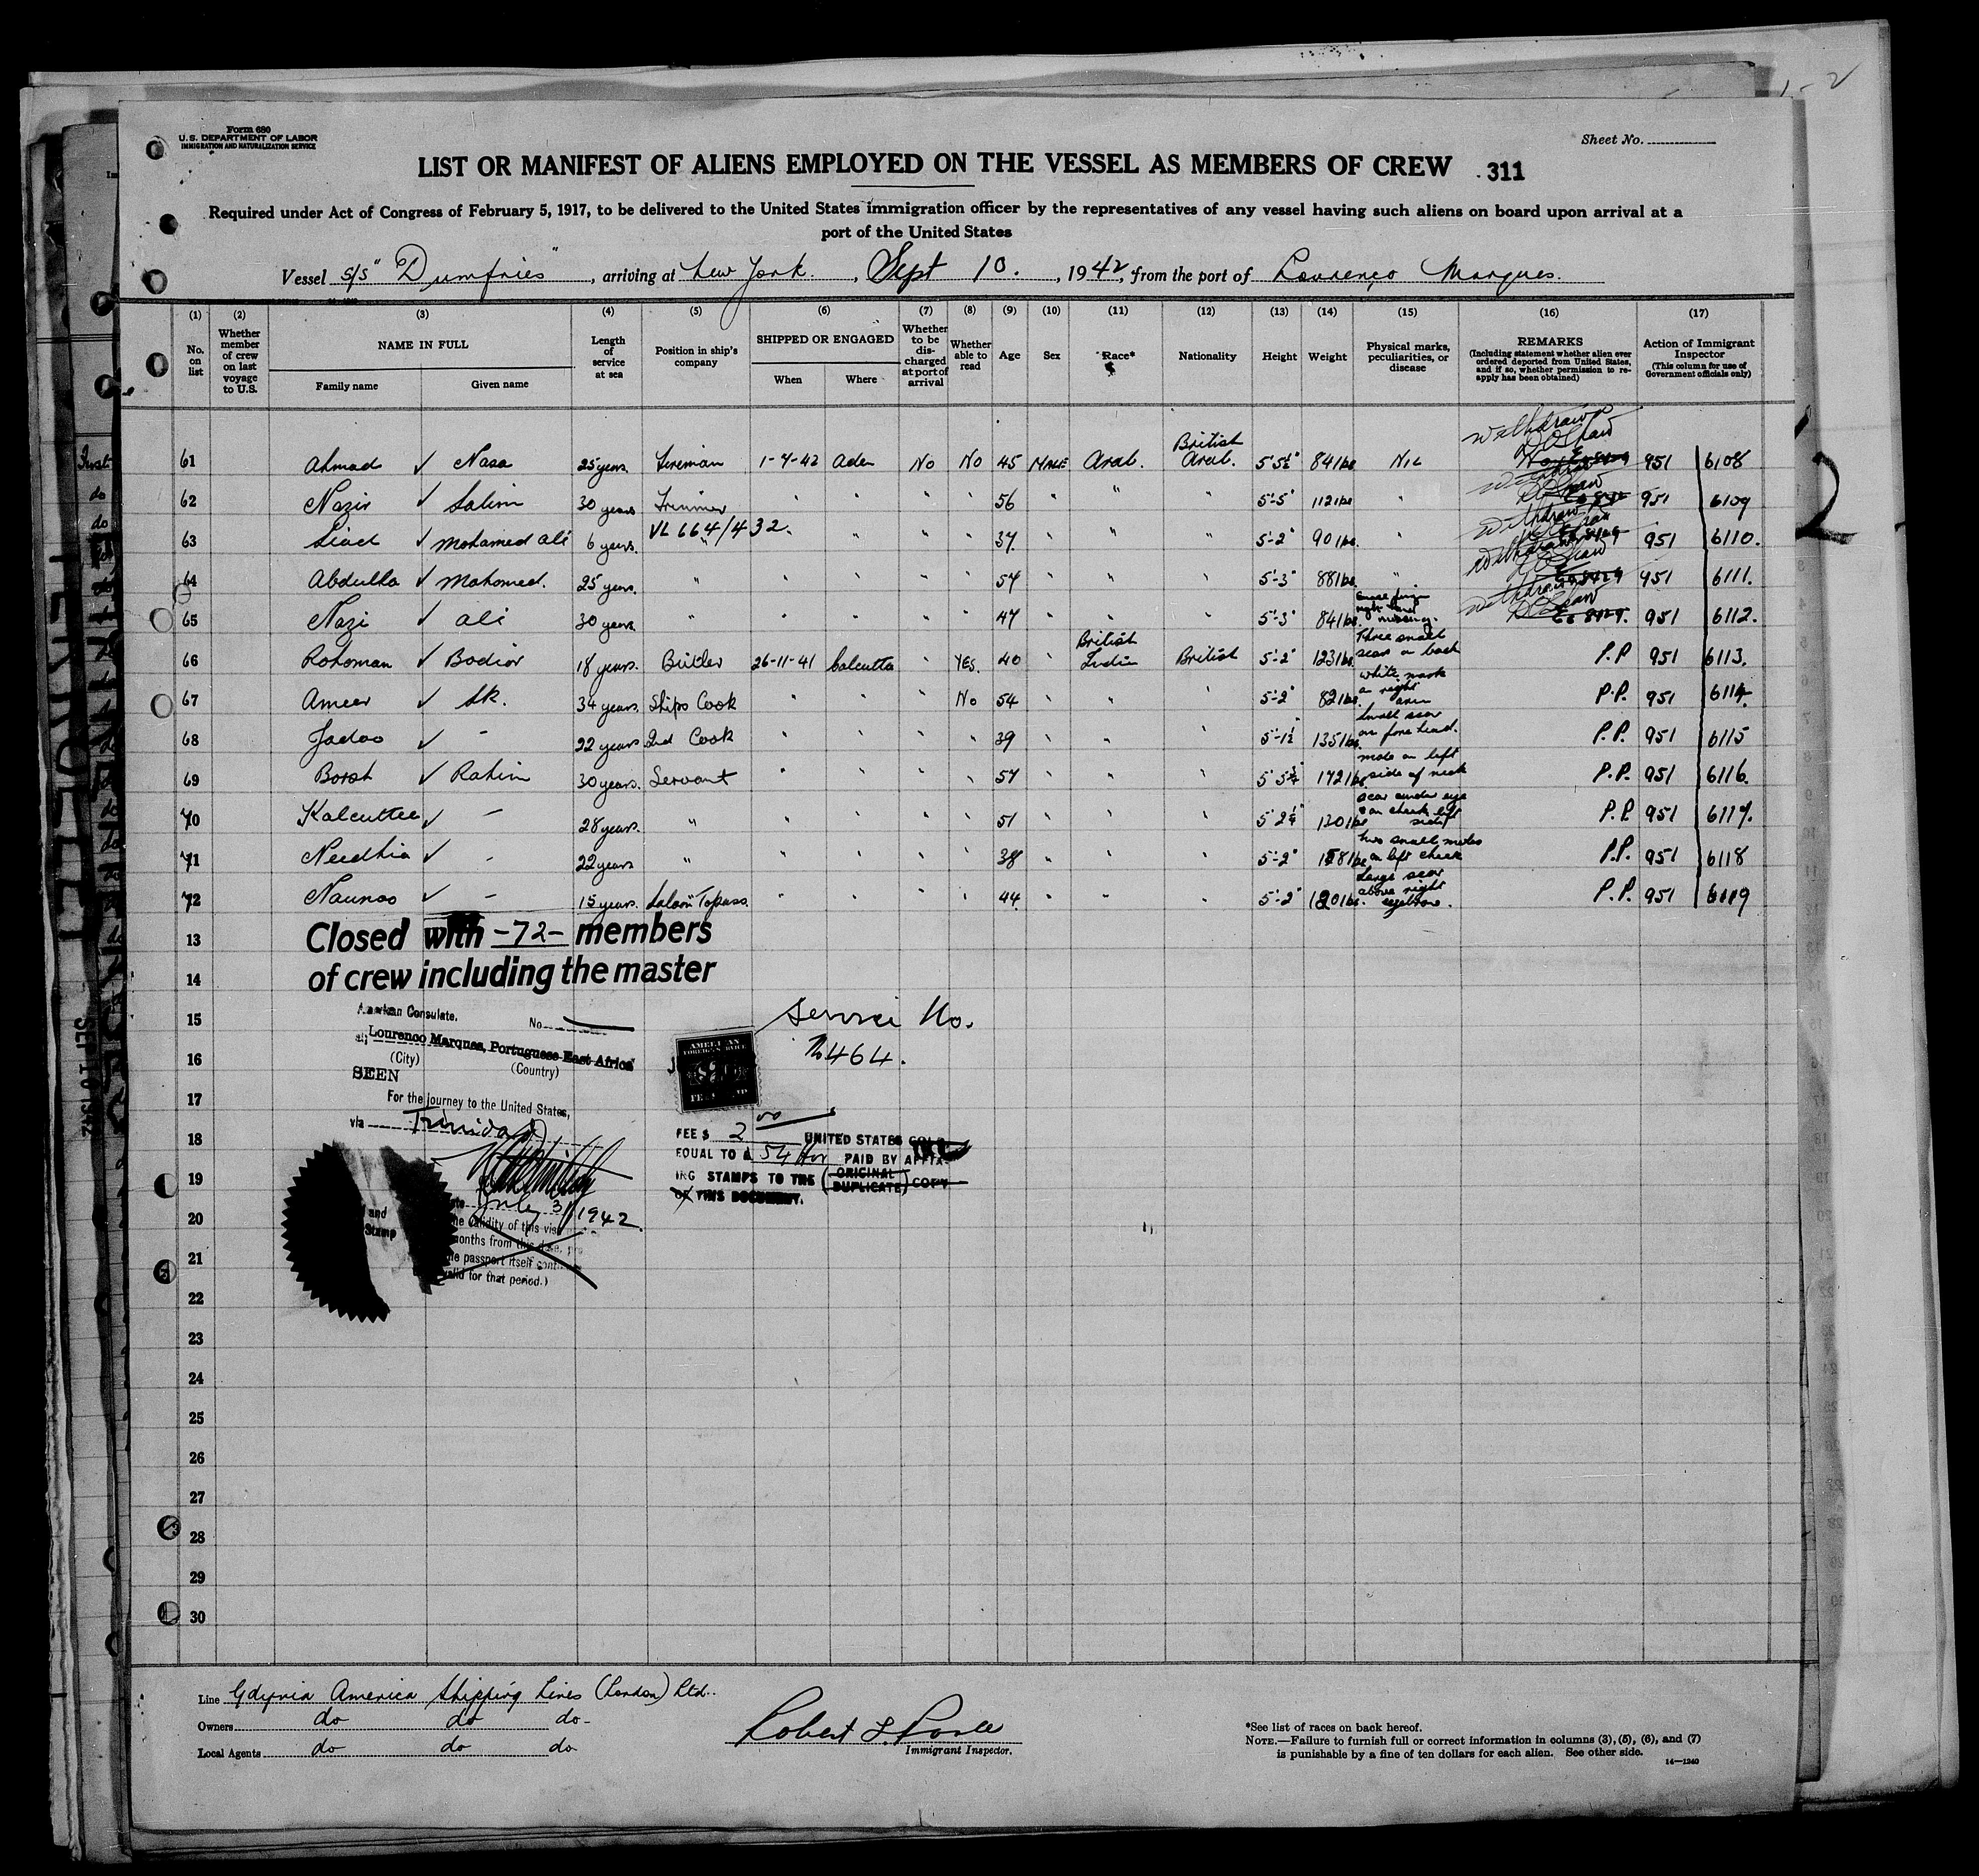 Form 680
U.S. DEPARTMENT OF LABOR
IMMIGRATION AND NATURALIZATION SERVICE
Sheet No.
LIST OR MANIFEST OF ALIENS EMPLOYED ON THE VESSEL AS MEMBERS OF CREW 311
Required under Act of Congress of February 5, 1917, to be delivered to the United States immigration officer by the representatives of any vessel having such aliens on board upon arrival at a
port of the United States
Vessel S/S "Dumfries", arriving at New York, Sept 10., 1942, from the port of Lourenço Marques.
(1) (2) (3) (4) (5) (6) (7) (8) (9) (10) (11) (12) (13) (14) (15) (16) (17)
No. on list
Whether member of crew on last voyage to U.S.
NAME IN FULL
Family name Given name
Length of service at sea
Position in ship's company
SHIPPED OR ENGAGED
When Where
Whether to be discharged at port of arrival
Whether able to read
Age Sex Race* Nationality Height Weight
Physical marks, peculiarities, or disease
REMARKS
(Including statement whether alien ever ordered deported from United States, and if so, whether permission to reapply has been obtained)
Action of Immigrant Inspector
(This column for use of Government officials only)
61 Ahmad ✓ Nasa 25 years Fireman 1-4-42 Aden No No 45 MALE Arab. British Arab. 5'5½" 84 lbs NIL 951 6108
62 Nazir ✓ Salim 30 years Trimmer " " " " 56 " " " 5'-5" 112 lbs " 951 6109
VL 664/432.
63 Siad ✓ Mohamed Ali 6 years. " " " " 37. " " " 5'-2" 90 lbs. " 951 6110.
64 Abdulla ✓ Mohomed. 25 years. " " " " " 57 " " " 5'-3" 88 lbs. " 951 6111.
65 Nazi ✓ Ali 30 years " " " " " 47 " " " 5'-3" 84 lbs. right hand missing. 951 6112.
66 Rohoman ✓ Bodior 18 years. Butler 26-11-41 Calcutta " YES. 40 " British Indian British 5'-2" 123 lbs. Three small scars on back P.P 951 6113.
67 Ameer ✓ Sk. 34 years. Ships Cook " " " No 54 " " " 5'-2" 82 lbs. white mark on right arm P.P. 951 6114.
68 Jadoo ✓ - 22 years 2nd Cook " " " " 39 " " " 5'-1½" 135 lbs. Small scar on fore head. P.P. 951 6115
69 Borat ✓ Rahim 30 years. Servant " " " " 57 " " " 172 lbs. mole on left side of neck P.P. 951 6116.
70 Kalcuttee ✓ - 28 years. " " " " " 51 " " " 130 lbs scar under eye P.P. 951 6117.
71 Needhia ✓ - 22 years " " " " " 38 " " " 5'-2" two small moles on left cheek P.P. 951 6118
72 Naunoo ✓ - 15 years. Saloon Topass. " " " " 44 " " " 5'-2" Large scar above right eyebrow. P.P. 951 6119
13
Closed with -72- members
14
of crew including the master
15
American Consulate. No.
Service No.
16
at Lourenco Marques, Portuguese East Africa
(City) (Country)
SEEN
AMERICAN FOREIGN SERVICE
464.
17
For the journey to the United States,
18
via Trinidad
FEE $ 2 00 UNITED STATES GOLD
EQUAL TO PAID BY AFFIX-
19
ING STAMPS TO THE (ORIGINAL DUPLICATE) COPY
OF THIS DOCUMENT.
and Stamp
July 31 1942
20
the validity of this visa
months from this date, pro
21
the passport itself
valid for that period.)
22
23
24
25
26
27
28
29
30
Line Gdynia America Shipping Lines (London) Ltd.
Owners do do do-
Local Agents do do do
Immigrant Inspector.
*See list of races on back hereof.
NOTE.—Failure to furnish full or correct information in columns (3), (5), (6), and (7)
is punishable by a fine of ten dollars for each alien. See other side.
14—1240
2
SEP 10 1942